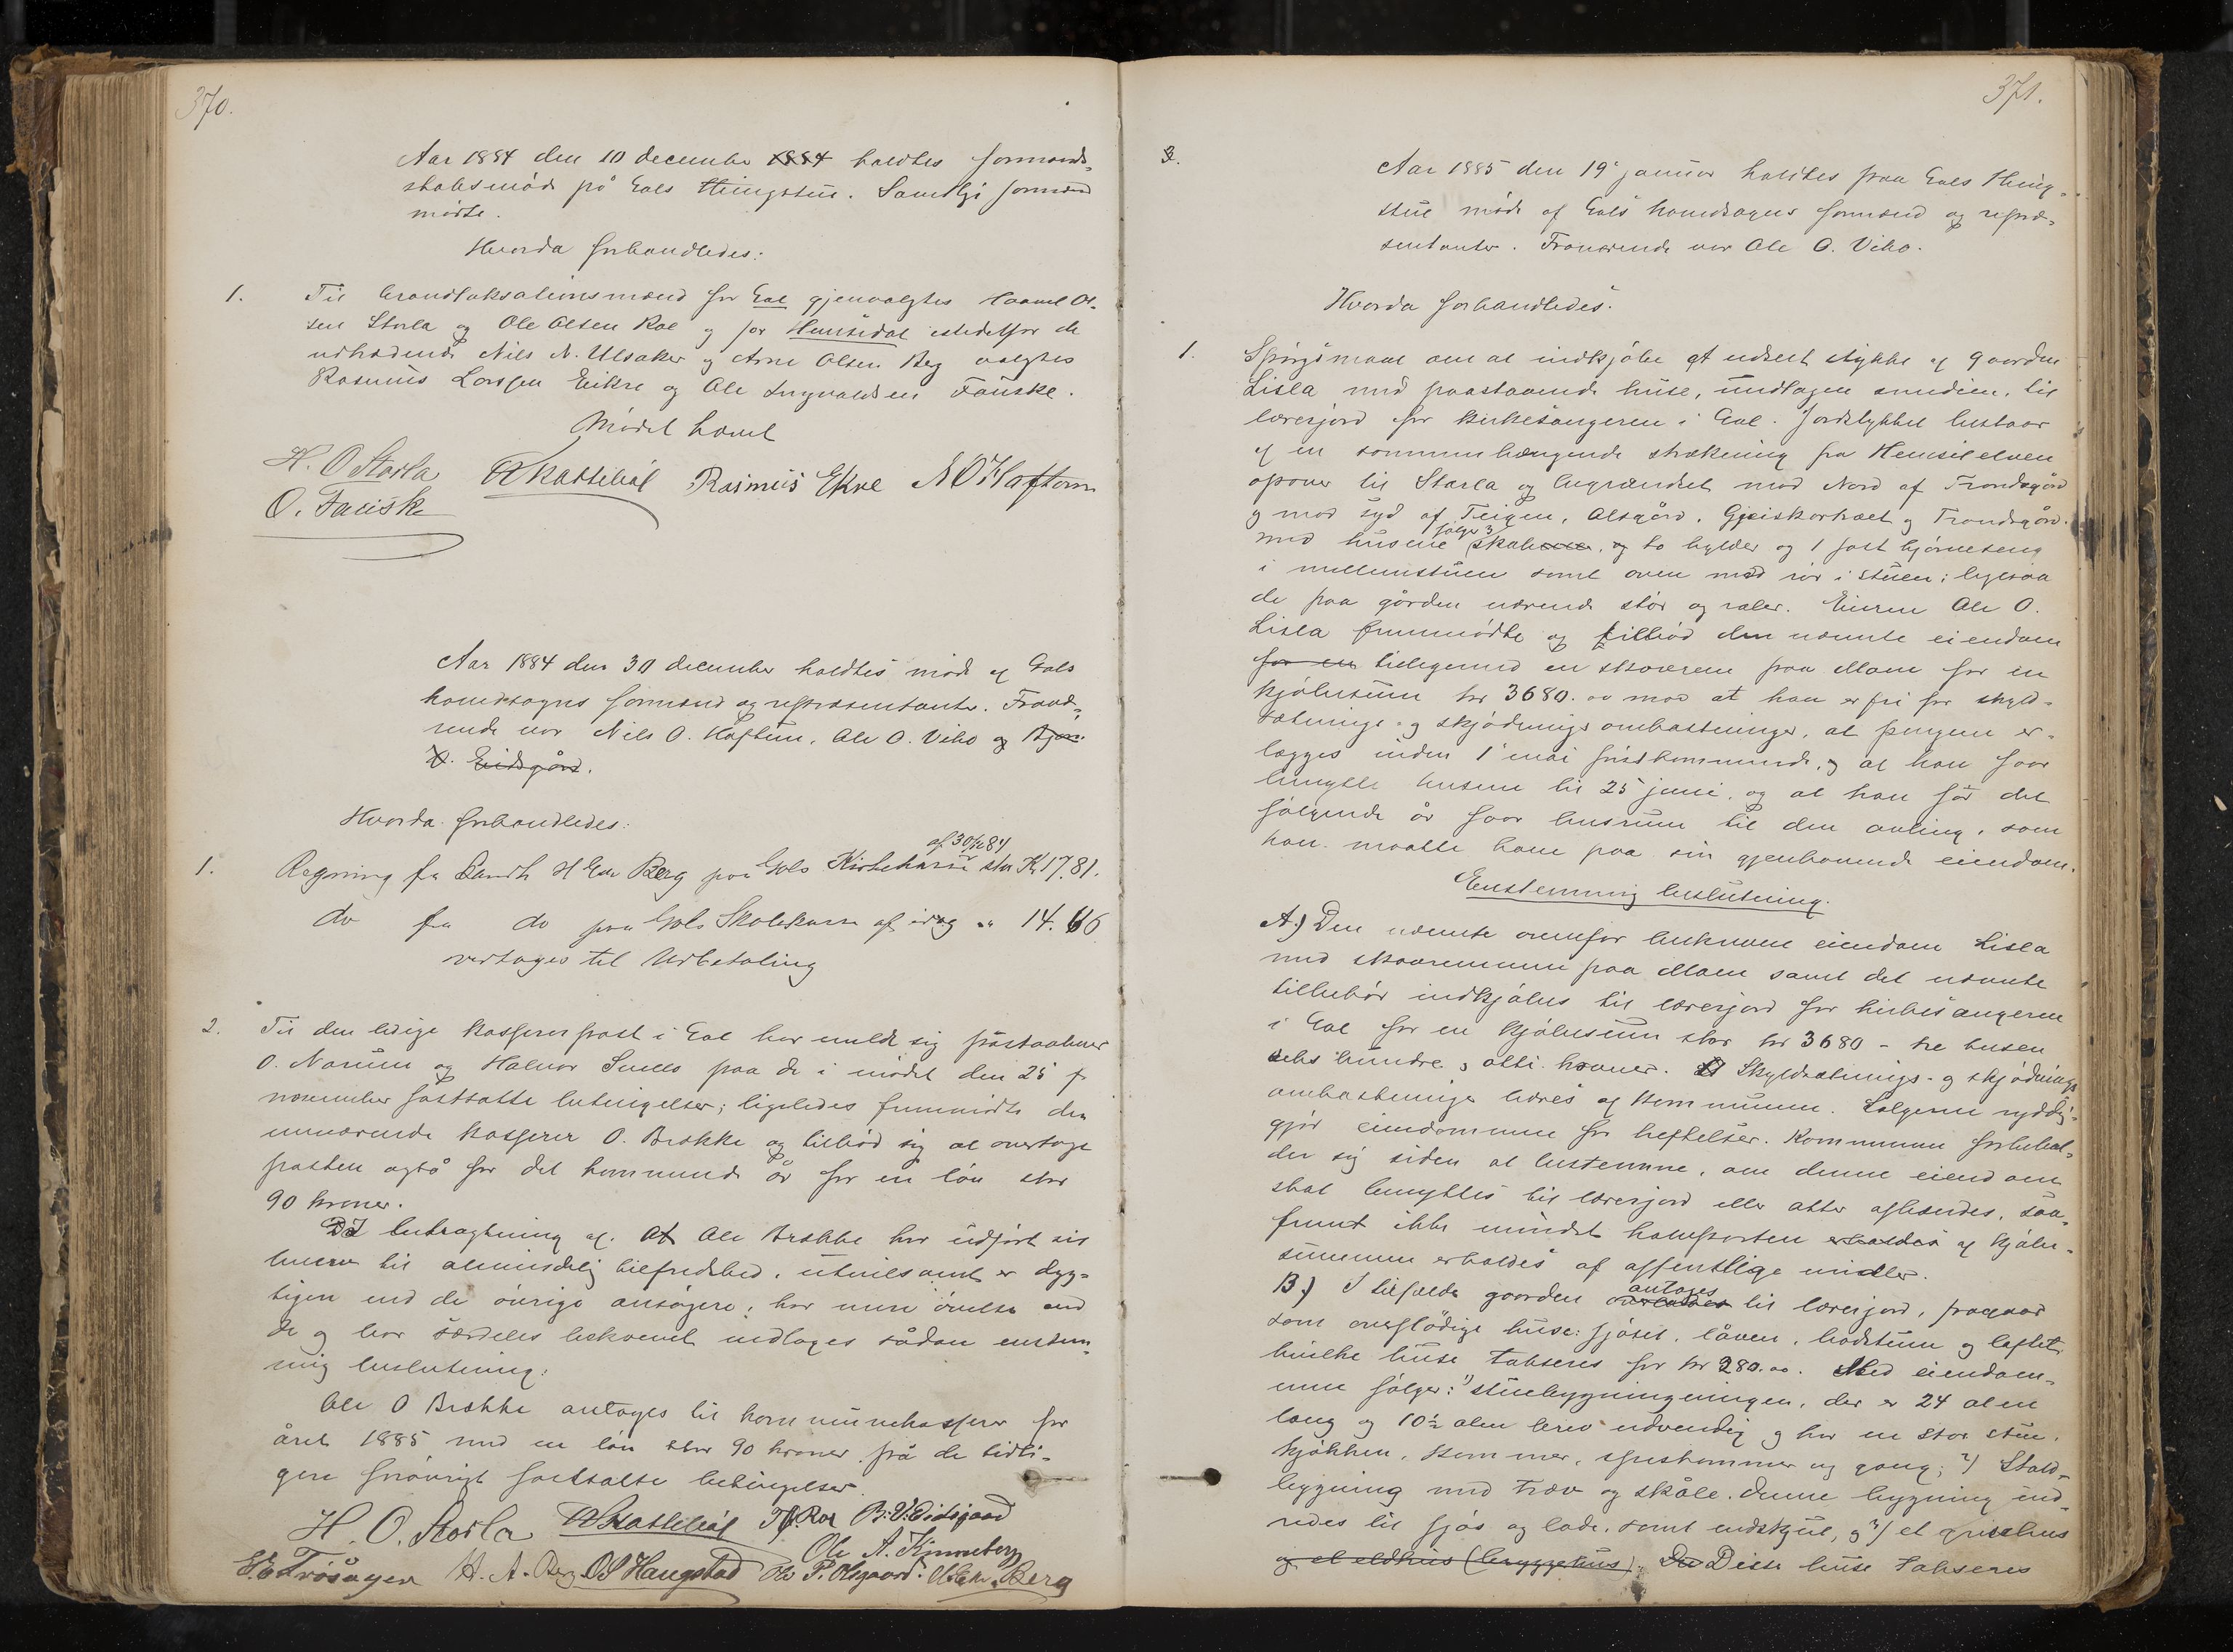 370.
Aar 1884 den 10 december 1884 holdtes formand-
skabsmöde på Gols thingstue. Samtlige formænd
mödte.
Hvorda forhandledes:
1. Til brandtaksationsmænd for Gol gjenvalgtes Ol-
sen Storla og Ole Olsen Roe og for Hemsedal istedetfor de
udtrædende Nils N. Ulsaker og Arne Olsen Beg valgtes
Rasmus Larssen Eikre og Ole Ingvaldsen Fauske.
Mödet hævet
H. O Storla Rasmus Ekre N O Haftorn
O. Fauske
Aar 1884 den 30 december holdtes möde af Gols
hovedsogns formænd og repræsentanter. Fravæ-
rende var Nils O. Haftun, Ole O. Viko og Bjørn
O. Eidsgård.
Hvorda forhandledes:
af 30/12 84
1. Regning fra Landh H Berg paa Gols Kirkekasse stor Kr 17.81.
do fra do paa Gols Skolekasse af idag " 14.66
vedtages til Udbetaling
2. Til den ledige kasserer post i Gol har meldt sig postaabner
O. Narum og Halvor Snello paa de i mödet den 25 f
november fastsatte betingelser; ligeledes fremmödte den
nuværende kasserer O. Brække og tilböd sig at overtage
posten også for det kommende år for en lön stor
90 kroner.
I betragtning af. At Ole Brække har udfört sit
hverv til almindelig tilfredshed, utvilsomt er dyg-
tigere end de övrige ansögere, har mere övelse end
de og bor særdeles bekvemt indtages sådan enstem-
mig beslutning:
Ole O Brække antages til kommunekasserer for
året 1885 med en lön stor 90 kroner på de tidli-
gere forövrigt fastsatte betingelser.
H. O. Storla T. Roe B. O. Eidsgaard
Ole A. Kinneberg
E. E Trösåger H. A. Berg O S Haugstad Ole P. Olsgaard. Berg
371.
3.
Aar 1885 den 19 januar holdtes paa Gols thing-
stue möde af Gols hovedsogns formænd og repræ-
sentanter. Fraværende var Ole O. Viko.
Hvorda forhandledes:
1. Spörgsmaal om at indkjöbe et udseet stykke af gaarden
Lisla med paastaaende huse, undtagen smedien, til
lærerjord for kirkesangeren i Gol. Jordstykket bestaar
af en sammenhængende strækning fra Hemsil elven
opover til Storla og begrændset mod Nord af Trondsgård
og mod syd af Teigen, Alsgård, og Trondsgård.
fölger 3
med husene skabene, og to hylder og 1 fast hjörneseng
i mellemstuen samt oven med rör i stuen; ligesaa
de paa gården værende stör og raler. Eieren Ole O.
Lisla fremmödte og tilböd den nævnte eiendom
for en tilligemed en skovrem paa Moen for en
kjöbesum kr 3680.00 mod at han er fri for skyld-
sætnings- og skjödningsomkostninger, at pengene er-
lægges inden 1 mai förstkommende, og at han faar
benytte husene til 25 juni, og at han få det
fölgende år faar husrum til den avling, som
han maatte have paa sin gjenhavende eiendom.
Enstemmig beslutning.
A.) Den nævnte ovenfor beskrevne eiendom Lisla
med skovremmen paa Moen samt det nævnte
tilbehör indkjöbes til lærerjord for kirkesangeren
i Gol for en kjöbesum stor kr 3680 - tre tusen
seks hundre og otti kroner. Skyldsætnings- og skjödnings
omkostninger bæres af kommunen. Sælgeren ryddig-
gjör eiendommen for heftelser. Kommunen forbehol-
der sig siden at bestemme, om denne eiendom
skal benyttes til lærerjord eller atter afhændes, saa-
fremt ikke mindst halvparten erholdes af kjöbe-
summen erholdes af offentlige midler.
antages
B.) I tilfælde gaarden erholdes til lærerjord, fragaar
som overflödige huse: fjöset, låven, bodstuen og loftet,
hvilke huse takseres for kr 280.00. Med eiendom-
men fölger: 1) stuebygningeningen, der er 24 alen
lang og 10½ alen bred udvendig og har en stor stue,
kjökken, kammer, spiskammer og gang; 2) Stald-
bygning med træv og skåle, denne bygning ind-
redes til fjös og lade, samt vedskjul, og 3) et grisehus
og et eldhus (bryggehus). De Disse huse takseres